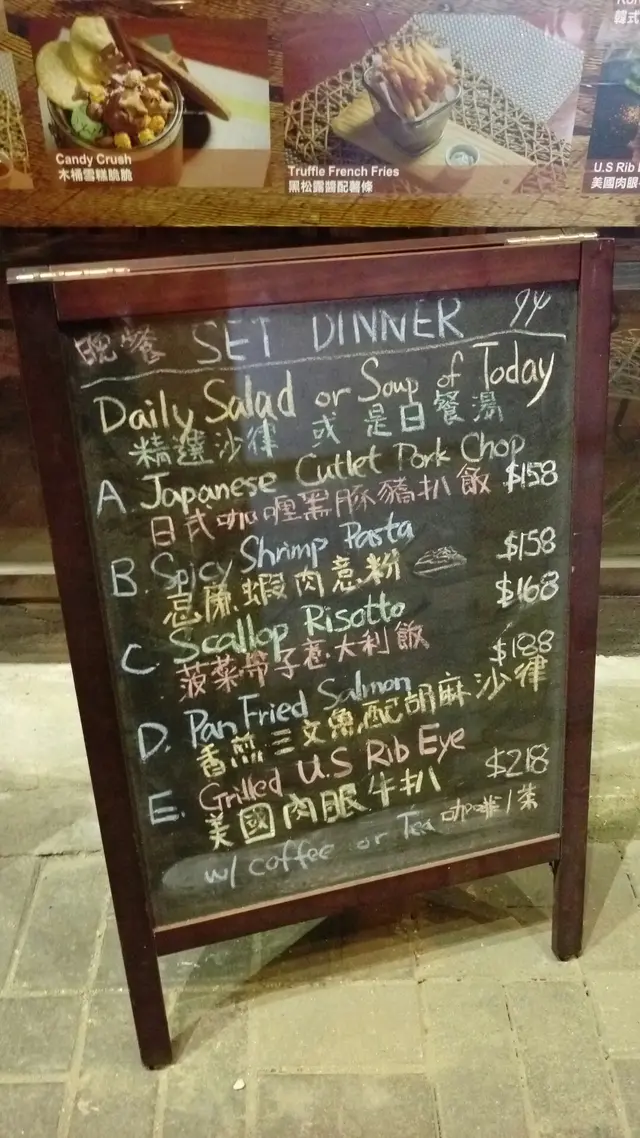 Candy Crush
木桶雪糕脆脆
Truffle French Fries
黑松露醬配薯條
U.S Rib
美國肉眼
韓式
晚餐 SET DINNER
Daily Salad or Soup of Today
精選沙律 或 是日餐湯
A. Japanese Cutlet Pork Chop
日式咖喱黑豚豬扒飯 $158
B. Spicy Shrimp Pasta $158
蝦肉意粉
C. Scallop Risotto $168
菠菜帶子意大利飯
D. Pan Fried Salmon $188
香煎三文魚配胡麻沙律
E. Grilled U.S Rib Eye $218
美國肉眼牛扒
w/ coffee or Tea 咖啡/茶